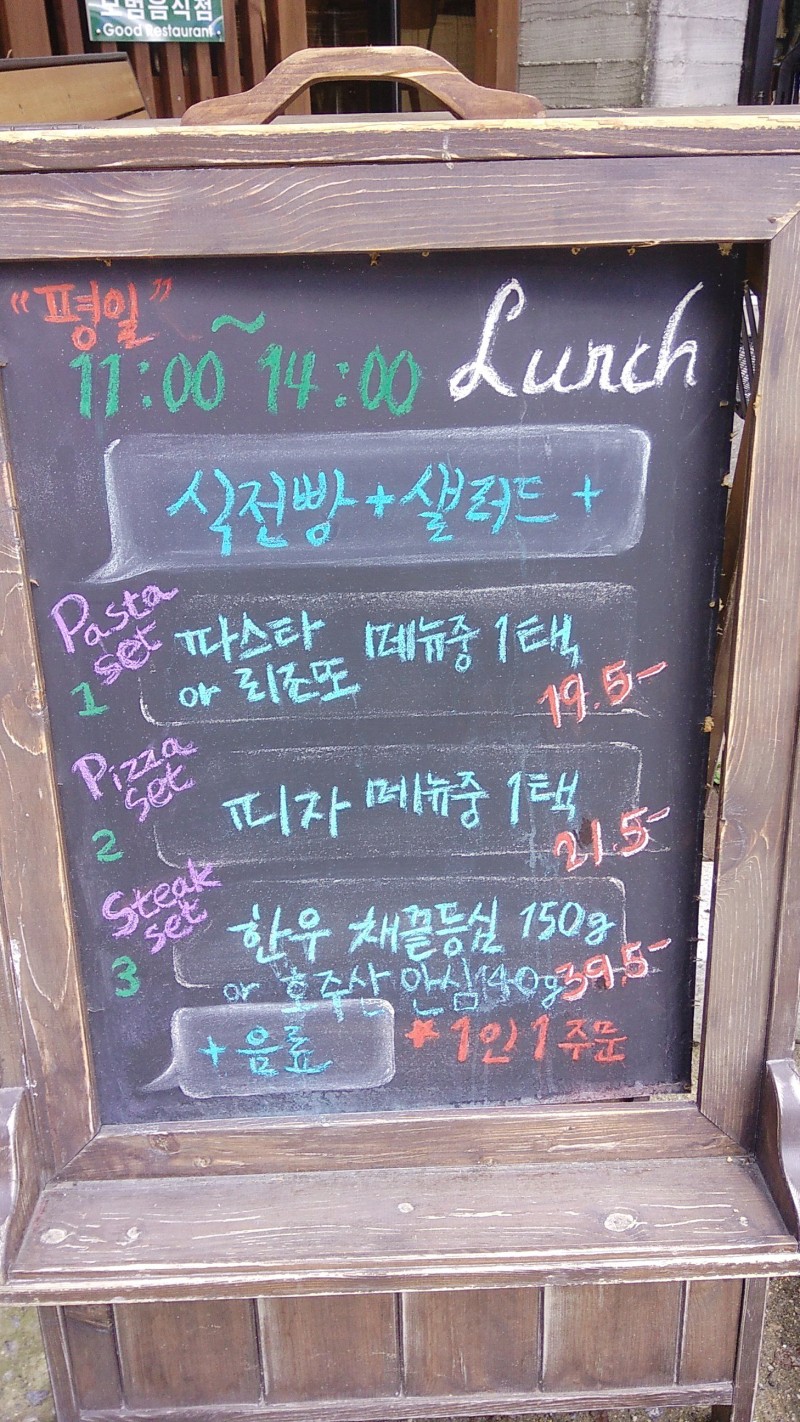 모범음식점
· Good Restaurant ·
"평일"
11:00 ~ 14:00
Lunch
식전빵 + 샐러드 +
Pasta set 1
파스타 메뉴중 1택
or 리조또
19.5-
Pizza set 2
피자 메뉴중 1택
21.5-
Steak set 3
한우 채끝등심 150g
or 호주산 안심 140g
39.5-
+ 음료
* 1인 1 주문